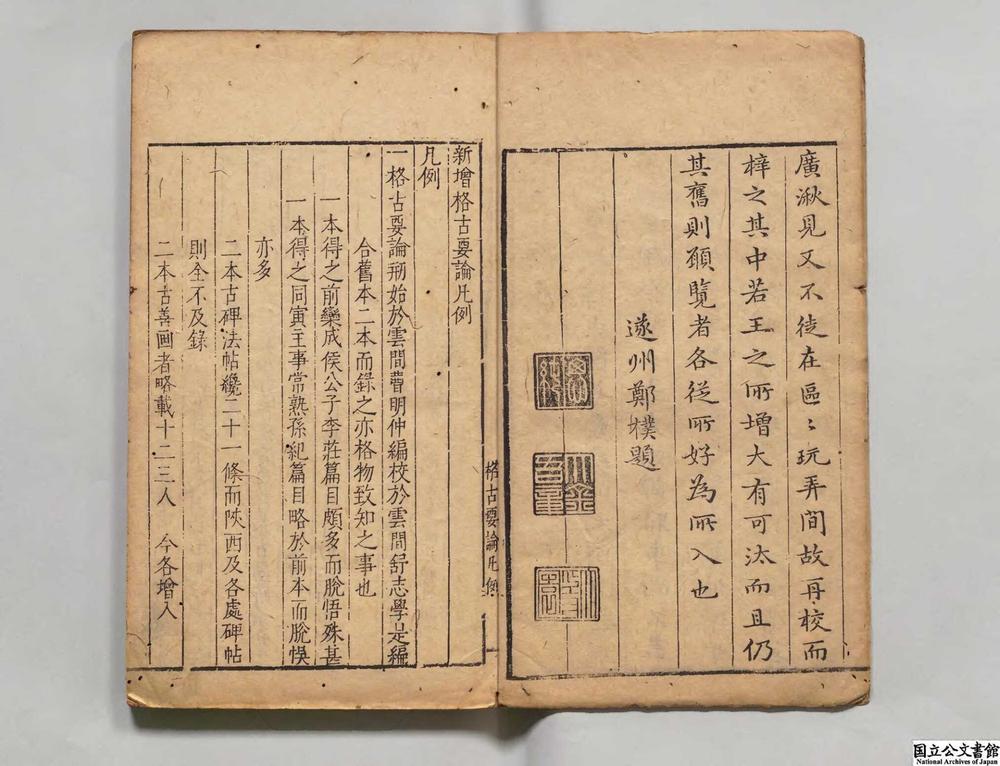 廣湫見又不徒在區〻玩弄間故再校而
梓之其中若王之所增大有可汰而且仍
其舊則願覽者各從所好為所入也
遂州鄭樸題
新增格古要論凡例
凡例
一格古要論刱始於雲間曹明仲編校於雲間舒志學是編
合舊本二本而錄之亦格物致知之事也
一本得之前欒成侯公子李莊篇目頗多而脫悟殊甚
一本得之同寅主事常熟孫紀篇目略於前本而脫悞
亦多
二本古碑法帖纔二十一條而陝西及各處碑帖
則全不及錄
二本古善画者略載十二三人　今各增入
格古要論凡例
国立公文書館
National Archives of Japan